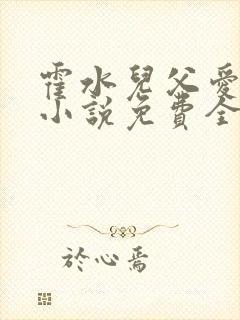 霍水兒父愛
小說免費全
於心焉